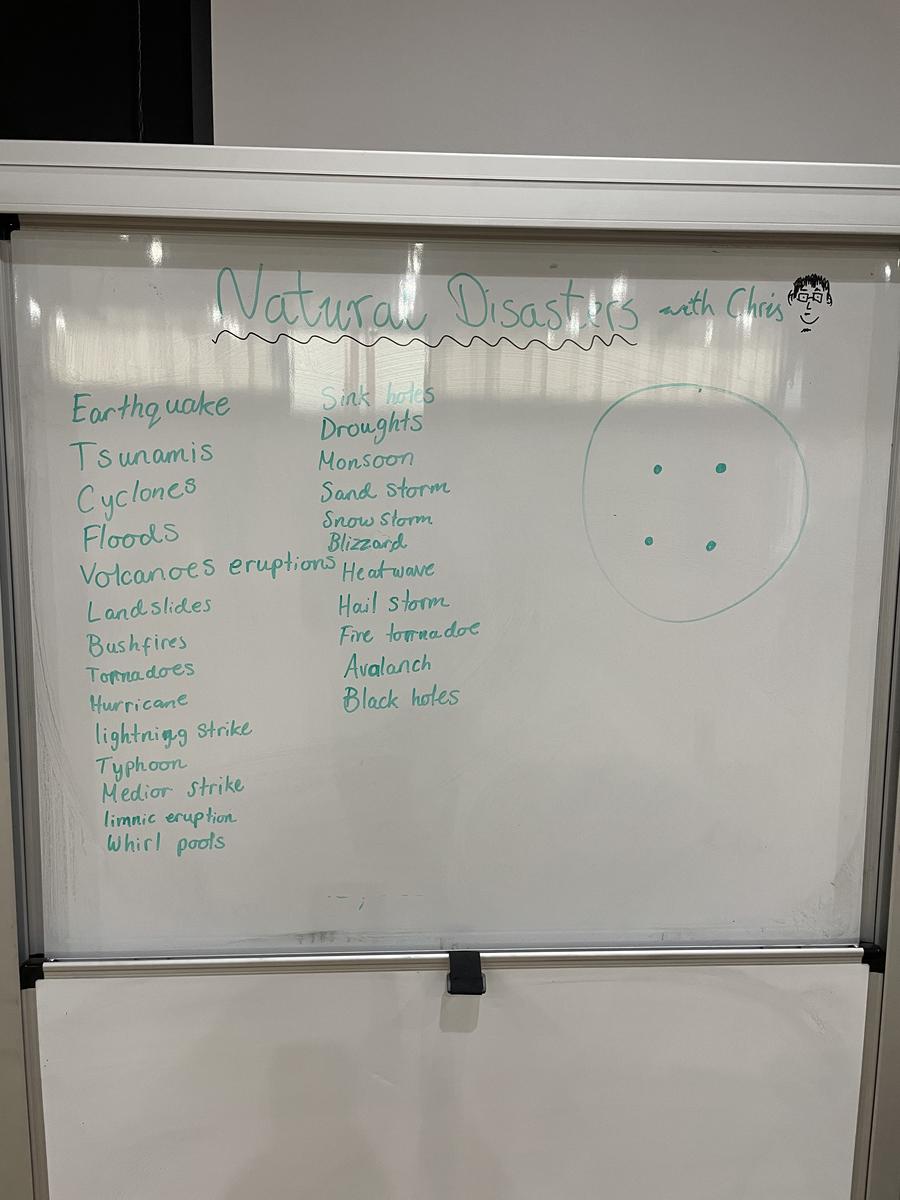 Natural Disasters with Chris
Earthquake
Tsunamis
Cyclones
Floods
Volcanoes eruptions
Landslides
Bushfires
Tornadoes
Hurricane
lightning strike
Typhoon
Medior strike
limnic eruption
Whirl pools
Sink holes
Droughts
Monsoon
Sand storm
Snow storm
Blizzard
Heatwave
Hail storm
Fire tornadoe
Avalanch
Black holes